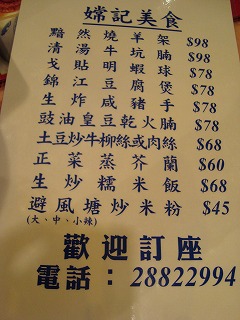 嫦記美食
黯然燒羊架 $98
清湯牛坑腩 $98
戈貼明蝦球 $78
錦江豆腐煲 $78
生炸咸豬手 $78
豉油皇豆乾火腩 $78
土豆炒牛柳絲或肉絲 $68
正菜蒸芥蘭 $60
生炒糯米飯 $68
避風塘炒米粉 $45
(大、中、小辣)
歡迎訂座
電話：28822994